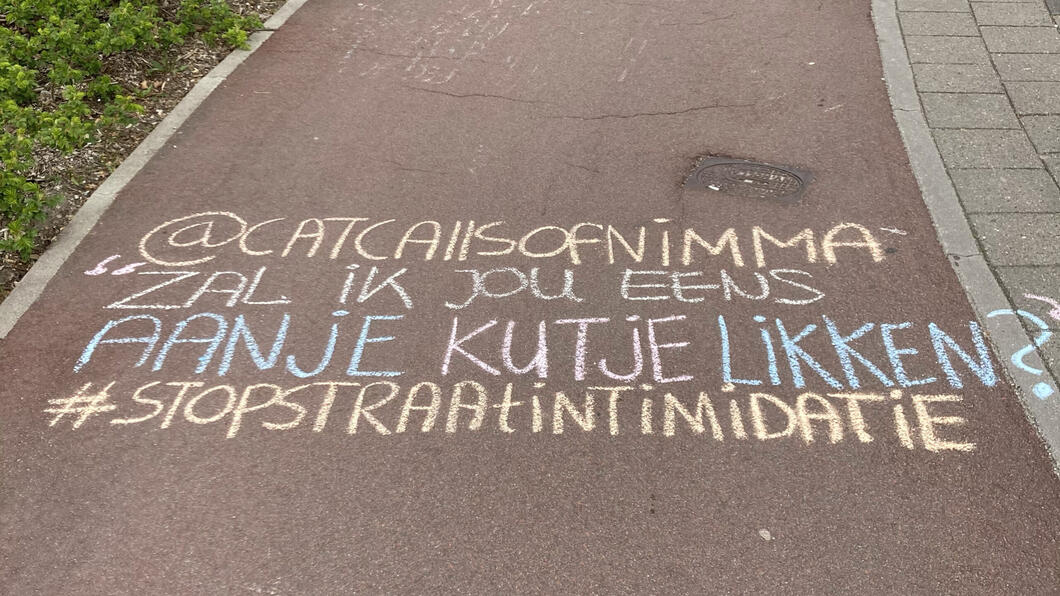 @CATCALLSOFNIMMA
“ZAL IK JOU EENS
AANJE KUTJE LIKKEN?”
#STOPSTRAATINTIMIDATIE